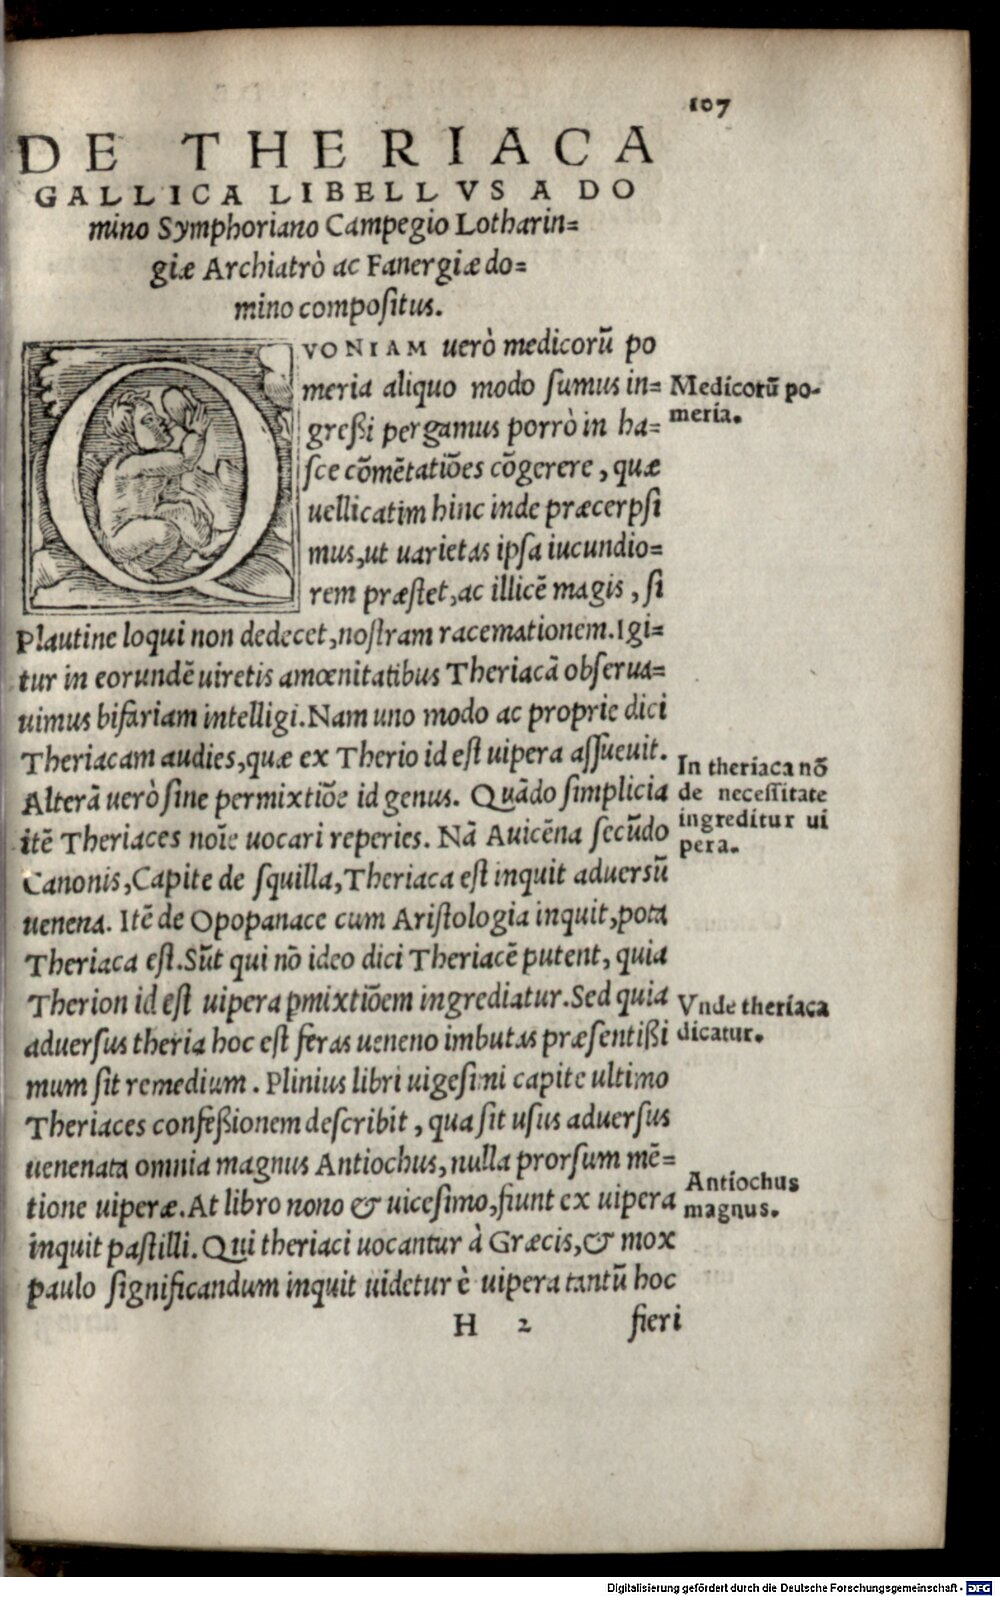 107
DE THERIACA
GALLICA LIBELLVS A DO
mino Symphoriano Campegio Lotharin=
giæ Archiatrò ac Fanergiæ do=
mino compoſitus.
QVONIAM uerò medicorũ po
meria aliquo modo ſumus in=
greßi pergamus porrò in ha=
ſce cõmẽtatiões cõgerere, quæ
uellicatim hinc inde præcerpſi
mus, ut uarietas ipſa iucundio=
rem præſtet, ac illicẽ magis, ſi
Plautine loqui non dedecet, noſtram racemationem. Igi=
tur in eorundẽ uiretis amœnitatibus Theriacã obſerua=
uimus bifariam intelligi. Nam uno modo ac proprie dici
Theriacam audies, quæ ex Therio id eſt uipera aſſueuit.
Alterã uerò ſine permixtiõe id genus. Quãdo ſimplicia
itẽ Theriaces noĩe uocari reperies. Nã Auicẽna ſecũdo
Canonis, Capite de ſquilla, Theriaca eſt inquit aduerſũ
uenena. Itẽ de Opopanace cum Ariſtologia inquit, pota
Theriaca eſt. Sũt qui nõ ideo dici Theriacẽ putent, quia
Therion id eſt uipera ꝑmixtiõem ingrediatur. Sed quia
aduerſus theria hoc eſt feras ueneno imbutas præſentißi
mum ſit remedium. Plinius libri uigeſimi capite ultimo
Theriaces confeßionem deſcribit, qua ſit uſus aduerſus
uenenata omnia magnus Antiochus, nulla prorſum mẽ=
tione uiperæ. At libro nono & uiceſimo, fiunt ex uipera
inquit paſtilli. Qui theriaci uocantur à Græcis, & mox
paulo ſignificandum inquit uidetur è uipera tantũ hoc
H 2 fieri
Medicorũ po-
meria.
In theriaca nõ
de neceſſitate
ingreditur ui
pera.
Vnde theriaca
dicatur.
Antiochus
magnus.
Digitalisierung gefördert durch die Deutsche Forschungsgemeinschaft - DFG